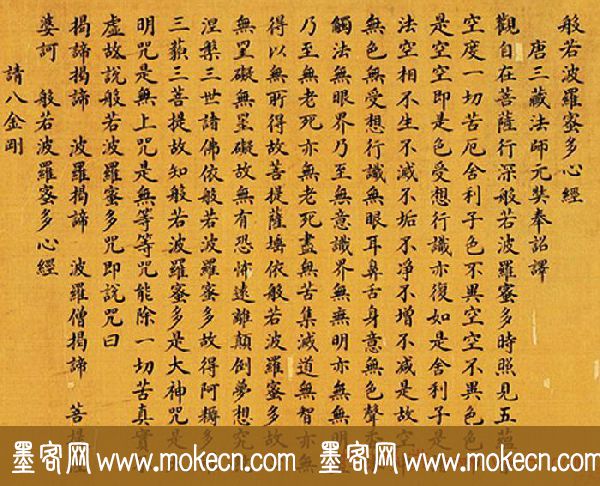 般若波羅蜜多心經
唐三藏法師元奘奉詔譯
觀自在菩薩行深般若波羅蜜多時照見五蘊
空度一切苦厄舍利子色不異空空不異色色
是空空即是色受想行識亦復如是舍利子是
法空相不生不滅不垢不淨不增不減是故空
無色無受想行識無眼耳鼻舌身意無色聲
觸法無眼界乃至無意識界無無明亦無無明
乃至無老死亦無老死盡無苦集滅道無智亦無
得以無所得故菩提薩埵依般若波羅蜜多故
無罣礙無罣礙故無有恐怖遠離顛倒夢想究
涅槃三世諸佛依般若波羅蜜多故得阿耨多
三藐三菩提故知般若波羅蜜多是大神咒是
明咒是無上咒是無等等咒能除一切苦真實
虛故說般若波羅蜜多咒即說咒曰
揭諦揭諦 波羅揭諦 波羅僧揭諦 菩
婆訶 般若波羅蜜多心經
請八金剛
墨客网 www.mokecn.com 墨客网 www.mokecn.com